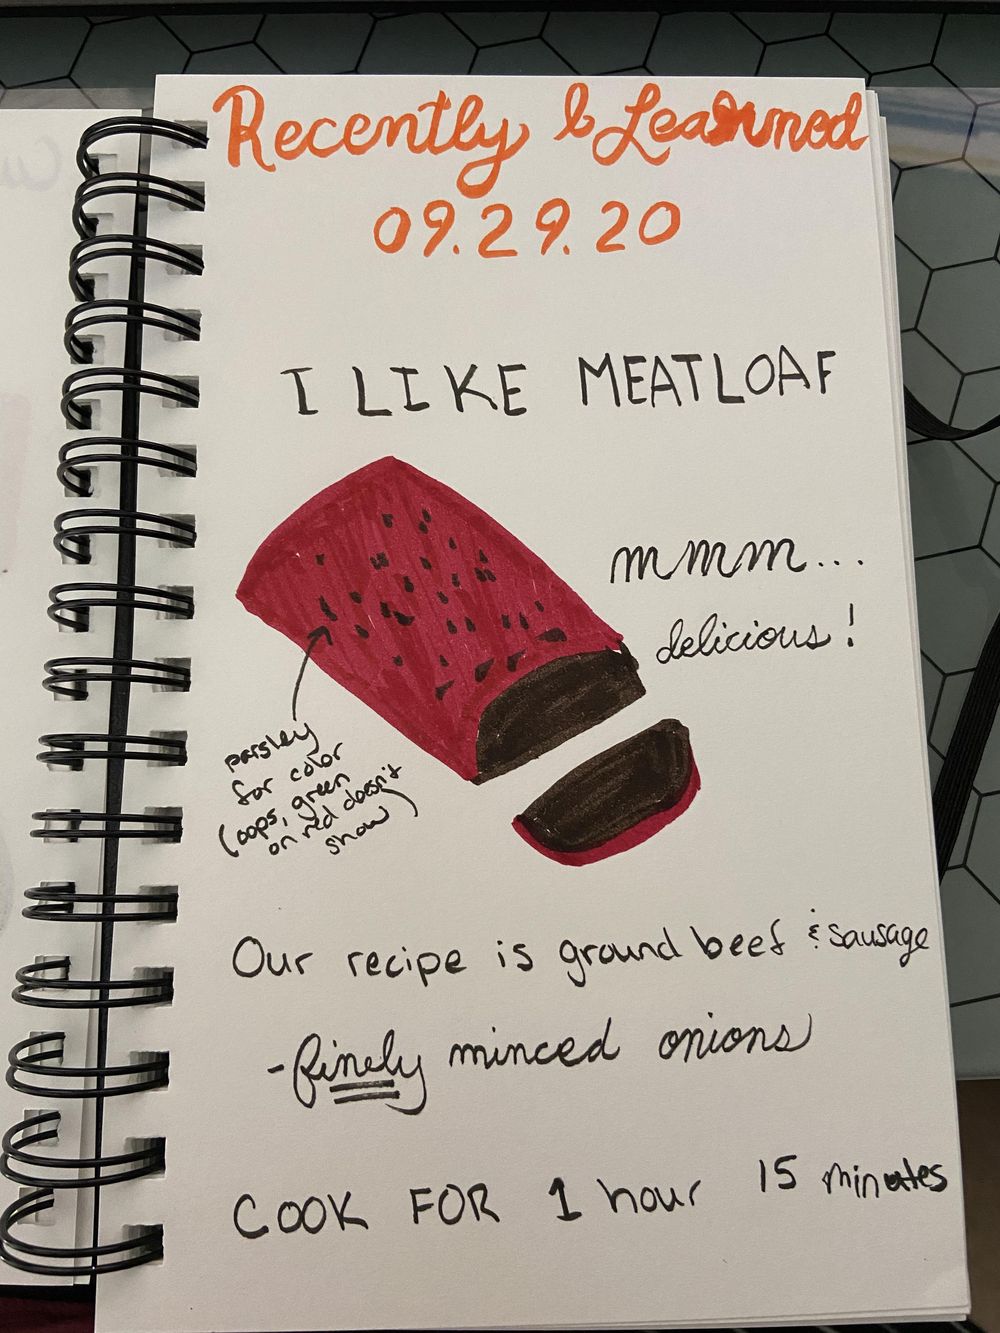 Recently Learned
09.29.20
I LIKE MEATLOAF
mmm...
delicious!
parsley
for color
(oops, green
on red doesn't
show)
Our recipe is ground beef & sausage
-finely minced onions
COOK FOR 1 hour 15 minutes